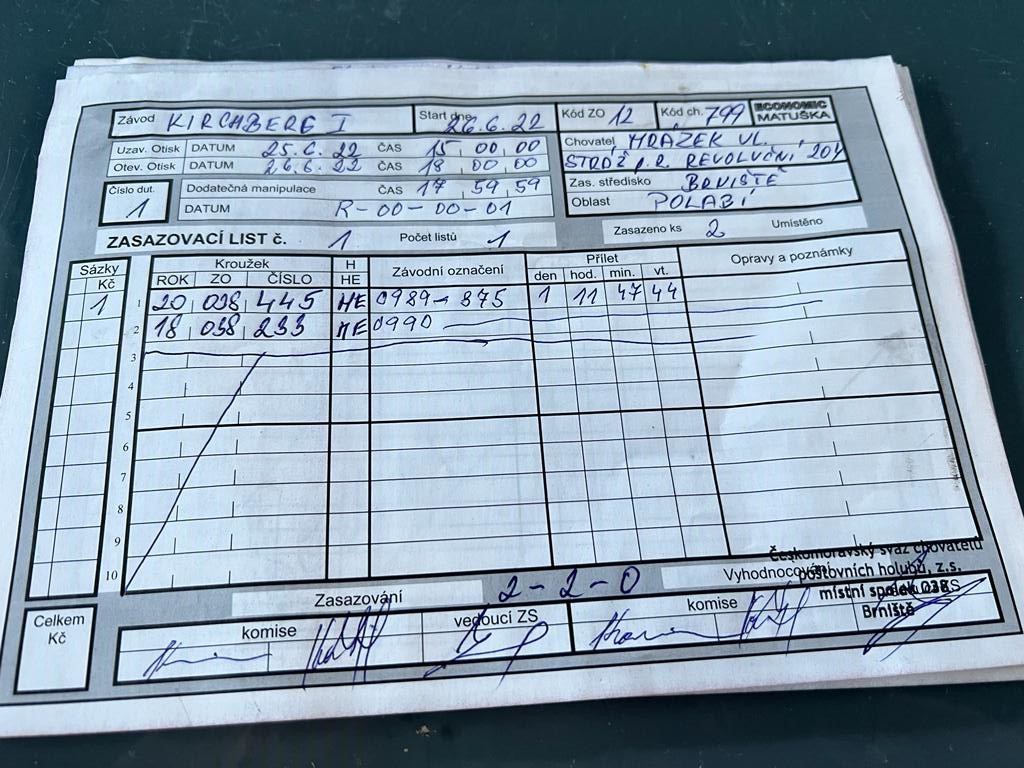 Závod KIRCHBERG I Start dne 26.6.22 Kód ZO 12 Kód ch. 799 ECONOMIC MATUŠKA
Uzav. Otisk DATUM 25.6.22 ČAS 15 00 00
Otev. Otisk DATUM 26.6.22 ČAS 18 00 00
Chovatel MRÁZEK VL.
STRÁŽ p.R. REVOLUČNÍ 204
Číslo dut. 1
Dodatečná manipulace ČAS 17 59 59
DATUM R-00-00-01
Zas. středisko BRNIŠTĚ
Oblast POLABÍ
ZASAZOVACÍ LIST č. 1 Počet listů 1
Zasazeno ks 2 Umístěno
Sázky Kč
Kroužek H Závodní označení Přílet Opravy a poznámky
ROK ZO ČÍSLO HE den hod. min. vt.
1 1 20 038 445 HE 0989 - 875 1 11 47 44
2 18 038 233 HE 0990
3
4
5
6
7
8
9
10
Zasazování 2-2-0 Vyhodnocování
Českomoravský svaz chovatelů
poštovních holubů, z.s.
místní spolek 038
Brniště
Celkem Kč
komise vedoucí ZS komise